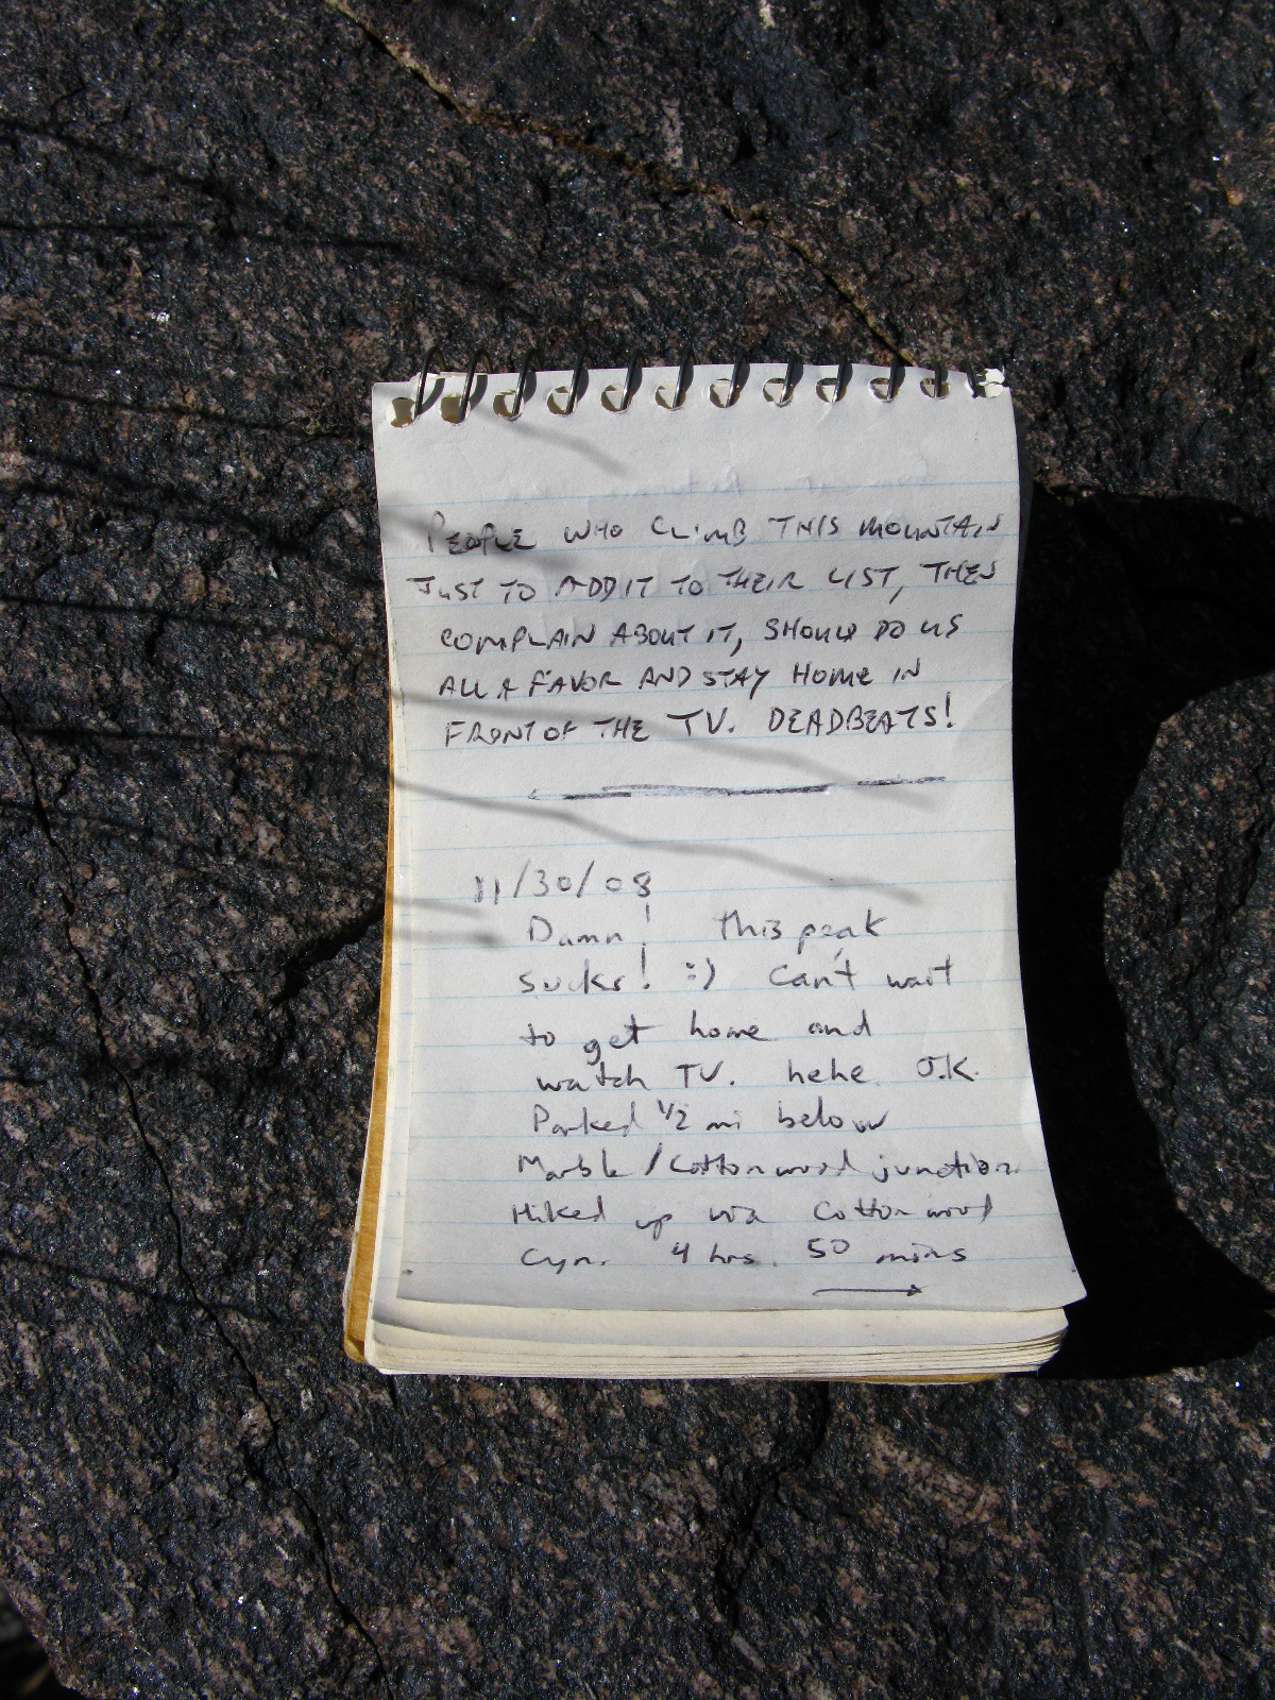 PEOPLE WHO CLIMB THIS MOUNTAIN
JUST TO ADD IT TO THEIR LIST, THEN
COMPLAIN ABOUT IT, SHOULD DO US
ALL A FAVOR AND STAY HOME IN
FRONT OF THE TV. DEADBEATS!
11/30/08
Damn! this peak
sucks! :) Can't wait
to get home and
watch TV. hehe. J.K.
Parked 1/2 mi below
Marble/Cottonwood junction
Hiked up via Cottonwood
Cyn. 4 hrs. 50 mins